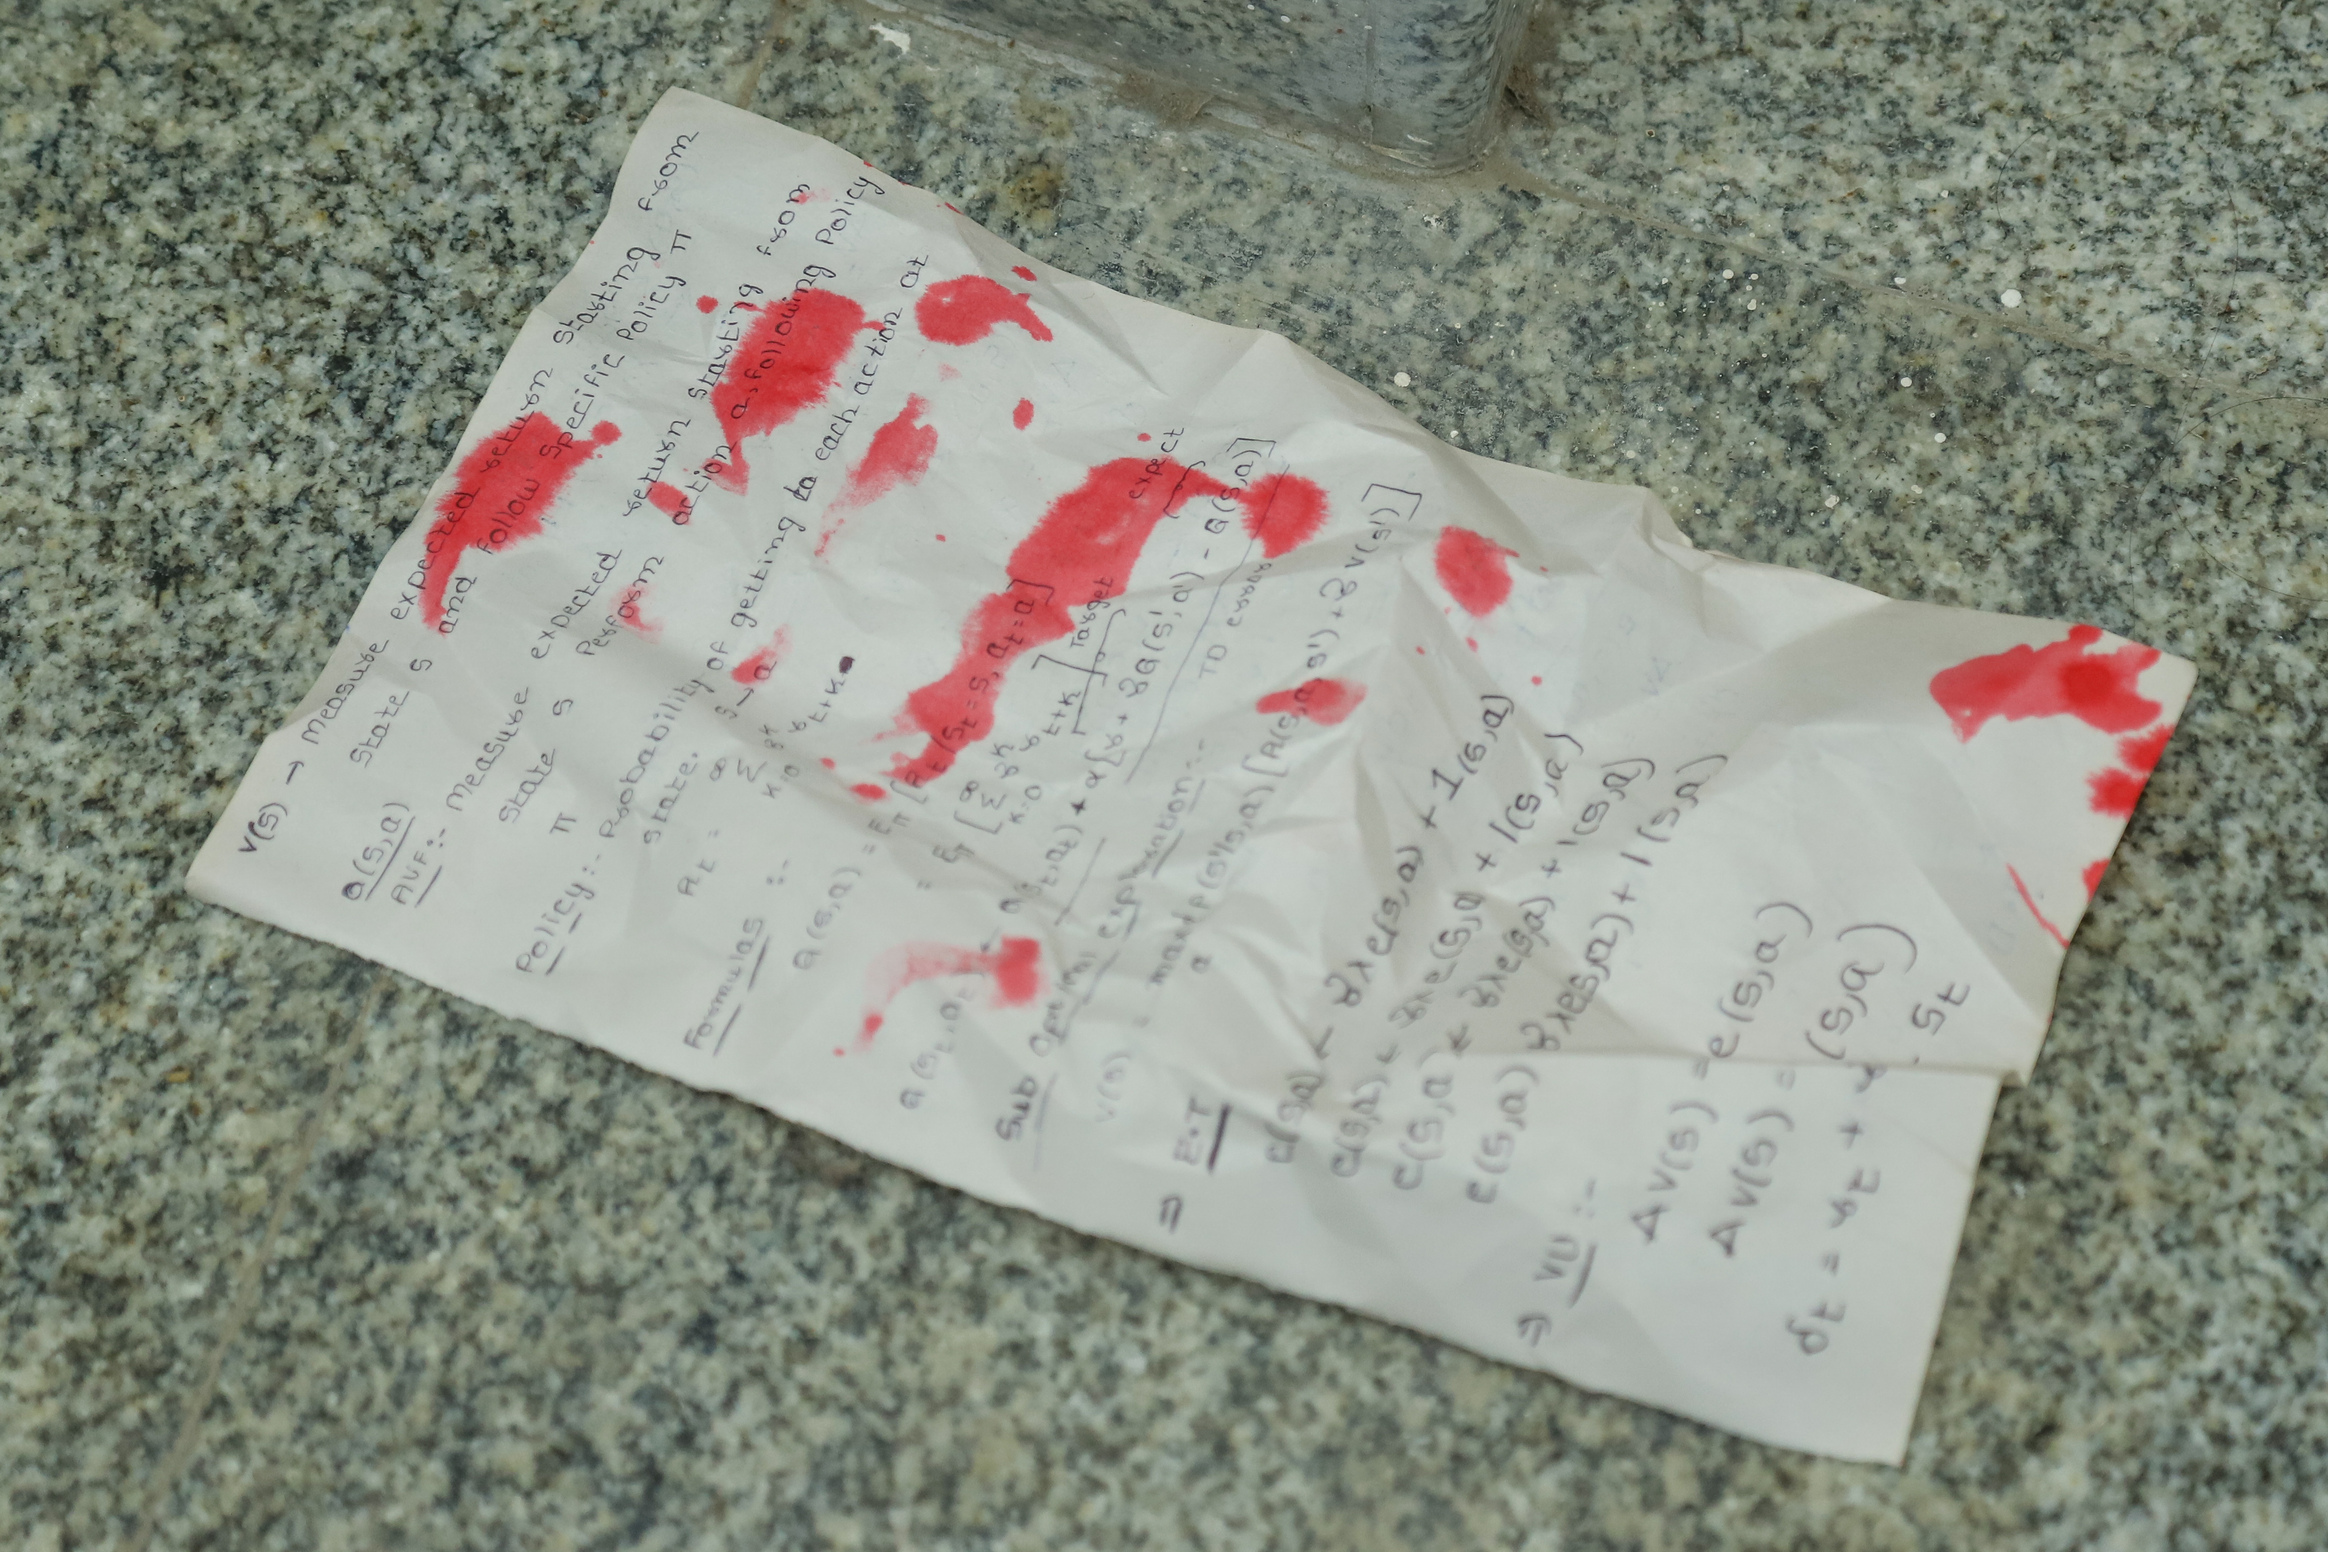 V(s) → Measure expected return starting from
state s and follow specific policy π
Q(s,a)
AVF:- Measure expected return starting from
state s Perform action a, following policy
π
Policy:- Probability of getting to each action at
state. s → a
Rt = ∞ Σ K=0 γ^K r t+K
Formulas :-
Q(s,a) = Eπ [Rt | st = s, at = a]
= Eπ [∞ Σ K=0 γ^K r t+K] Target expect
Q(st,at) ← Q(st,at) + α [r + γQ(s',a') - Q(s,a)]
TD error
Sub
V(s) = max a P(s'|s,a) [R(s,a,s') + γV(s')]
⇒ E.T
e(s,a) ← γλe(s,a) + 1(s,a)
e(s,a) ← γλe(s,a) + 1(s,a)
e(s,a) ← γλe(s,a) + 1(s,a)
e(s,a) γλe(s,a) + 1(s,a)
⇒ VU :-
ΔV(s) = e(s,a)
ΔV(s) = (s,a)
δt = rt + γ St